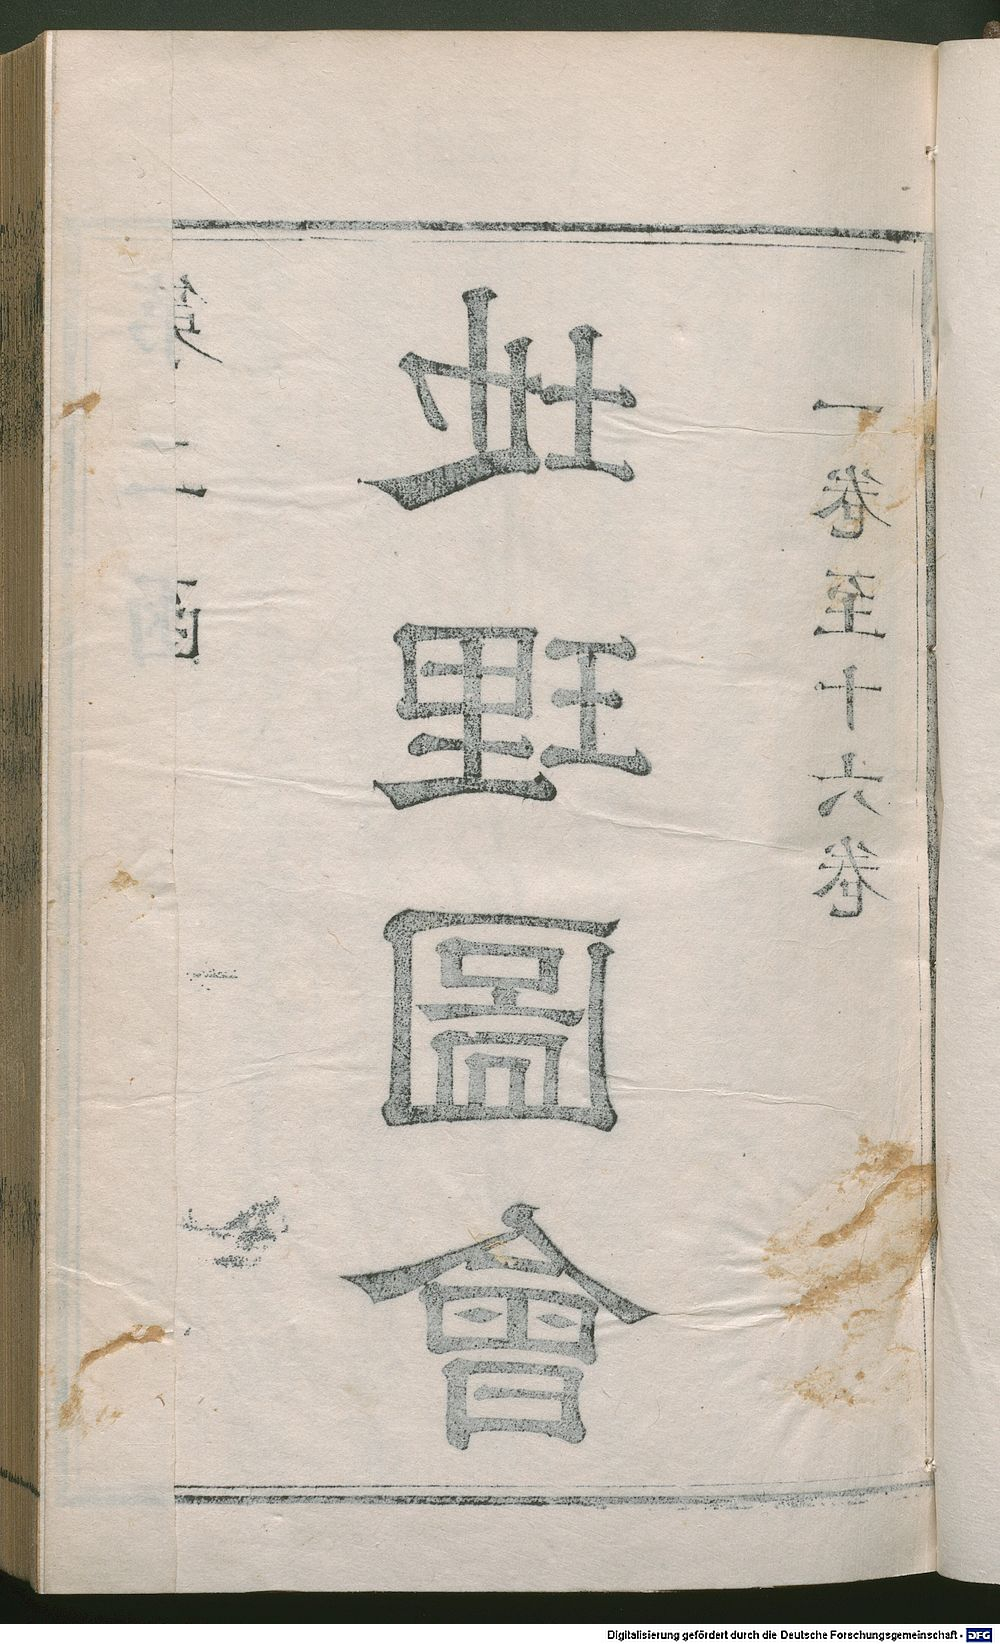 一卷至十六卷
地理圖會
Digitalisierung gefördert durch die Deutsche Forschungsgemeinschaft - DFG